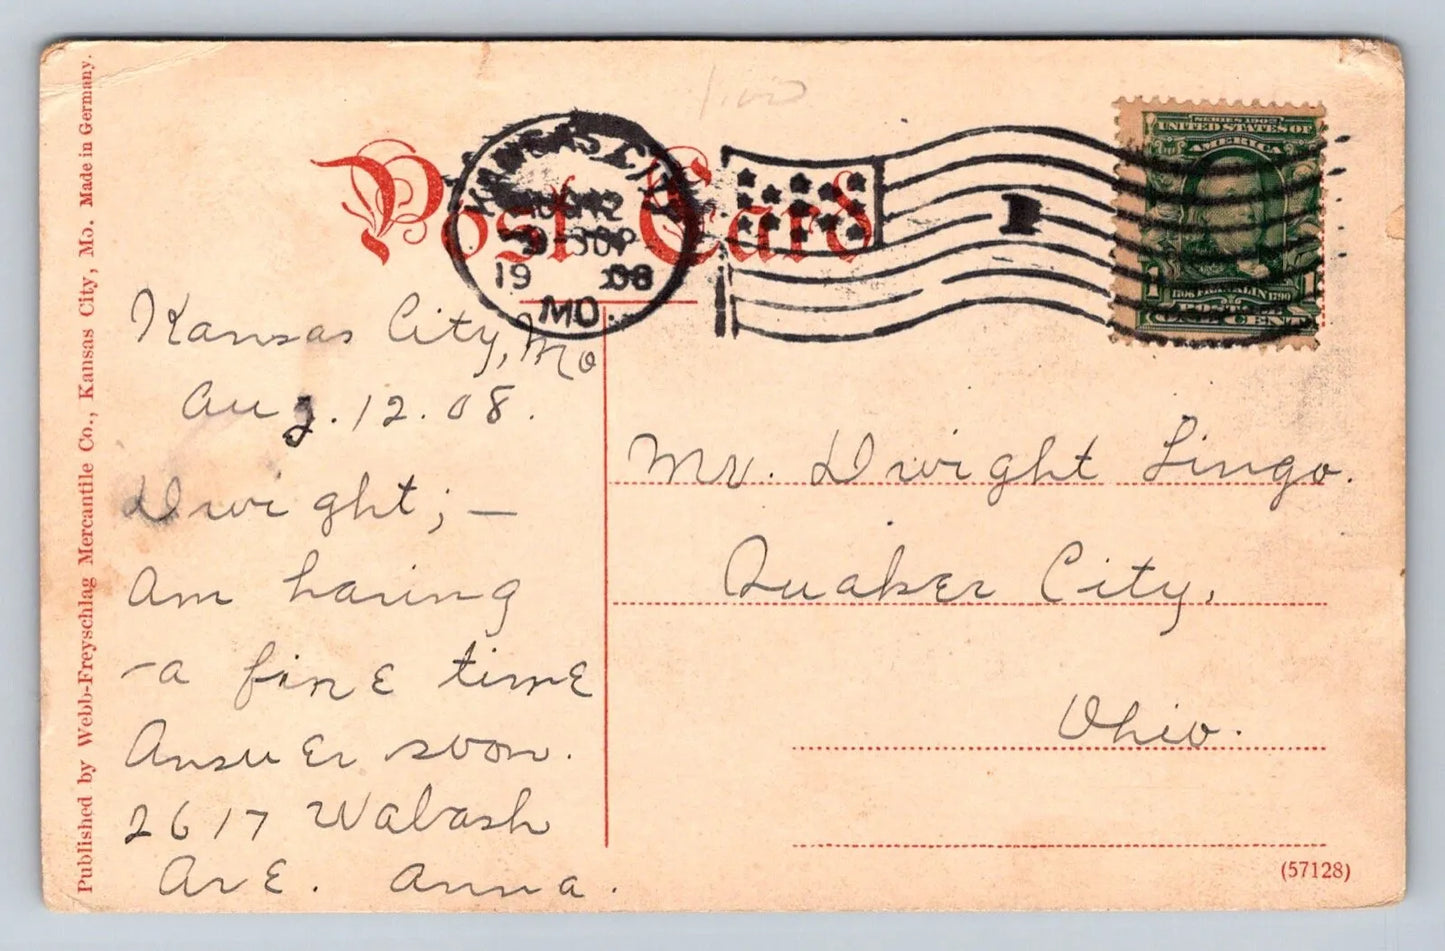 Published by Webb-Freyschlag Mercantile Co., Kansas City, Mo. Made in Germany.
Post Card
KANSAS CITY
19 08
MO.
SERIES 1902
UNITED STATES OF
AMERICA
1 1
1706 FRANKLIN 1790
Kansas City, Mo
Aug. 12. 08.
Dwight; —
Am having
a fine time
Answer soon.
2617 Wabash
Ave. Anna.
Mr. Dwight Lingo.
Quaker City,
Ohio.
(57128)